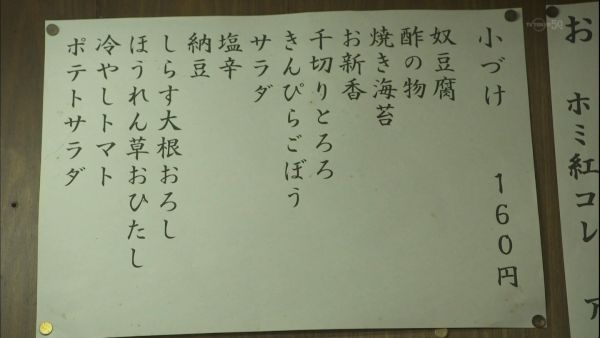 小づけ 160円
奴豆腐
酢の物
焼き海苔
お新香
千切りとろろ
きんぴらごぼう
サラダ
塩辛
納豆
しらす大根おろし
ほうれん草おひたし
冷やしトマト
ポテトサラダ
お
ホミ紅コレ ア
TV TOKYO 50